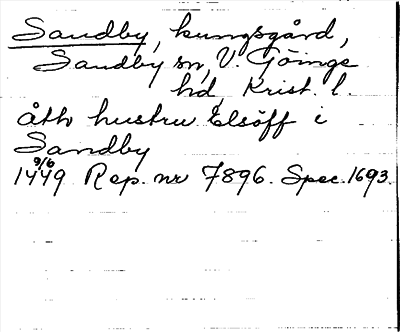 Sandby, kungsgård,
Sandby sn, V. Göinge
hd, Krist. l.
åth hustru Elsöff i
Sandby
9/6
1449 Rep. nr 7896. Spec. 1693.